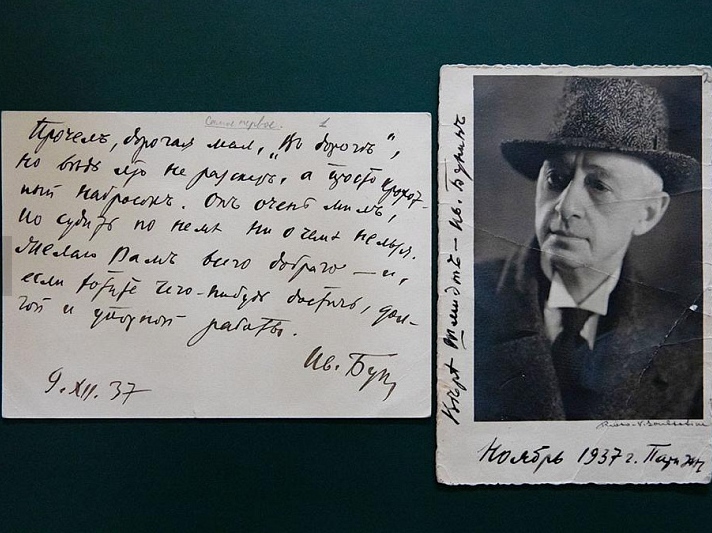 Самое первое. 1
Прочелъ, дорогая моя, „Въ дорогѣ“,
но вѣдь это не разсказъ, а просто крохот-
ный набросокъ. Онъ очень милъ,
но судить по немъ ни о чемъ нельзя.
Желаю Вамъ всего добраго — и,
если хотите чего-нибудь достичь, дол-
гой и упорной работы.
Ив. Бун
9. XII. 37
2
Ив. Бунинъ
Ноябрь 1937 г. Париж